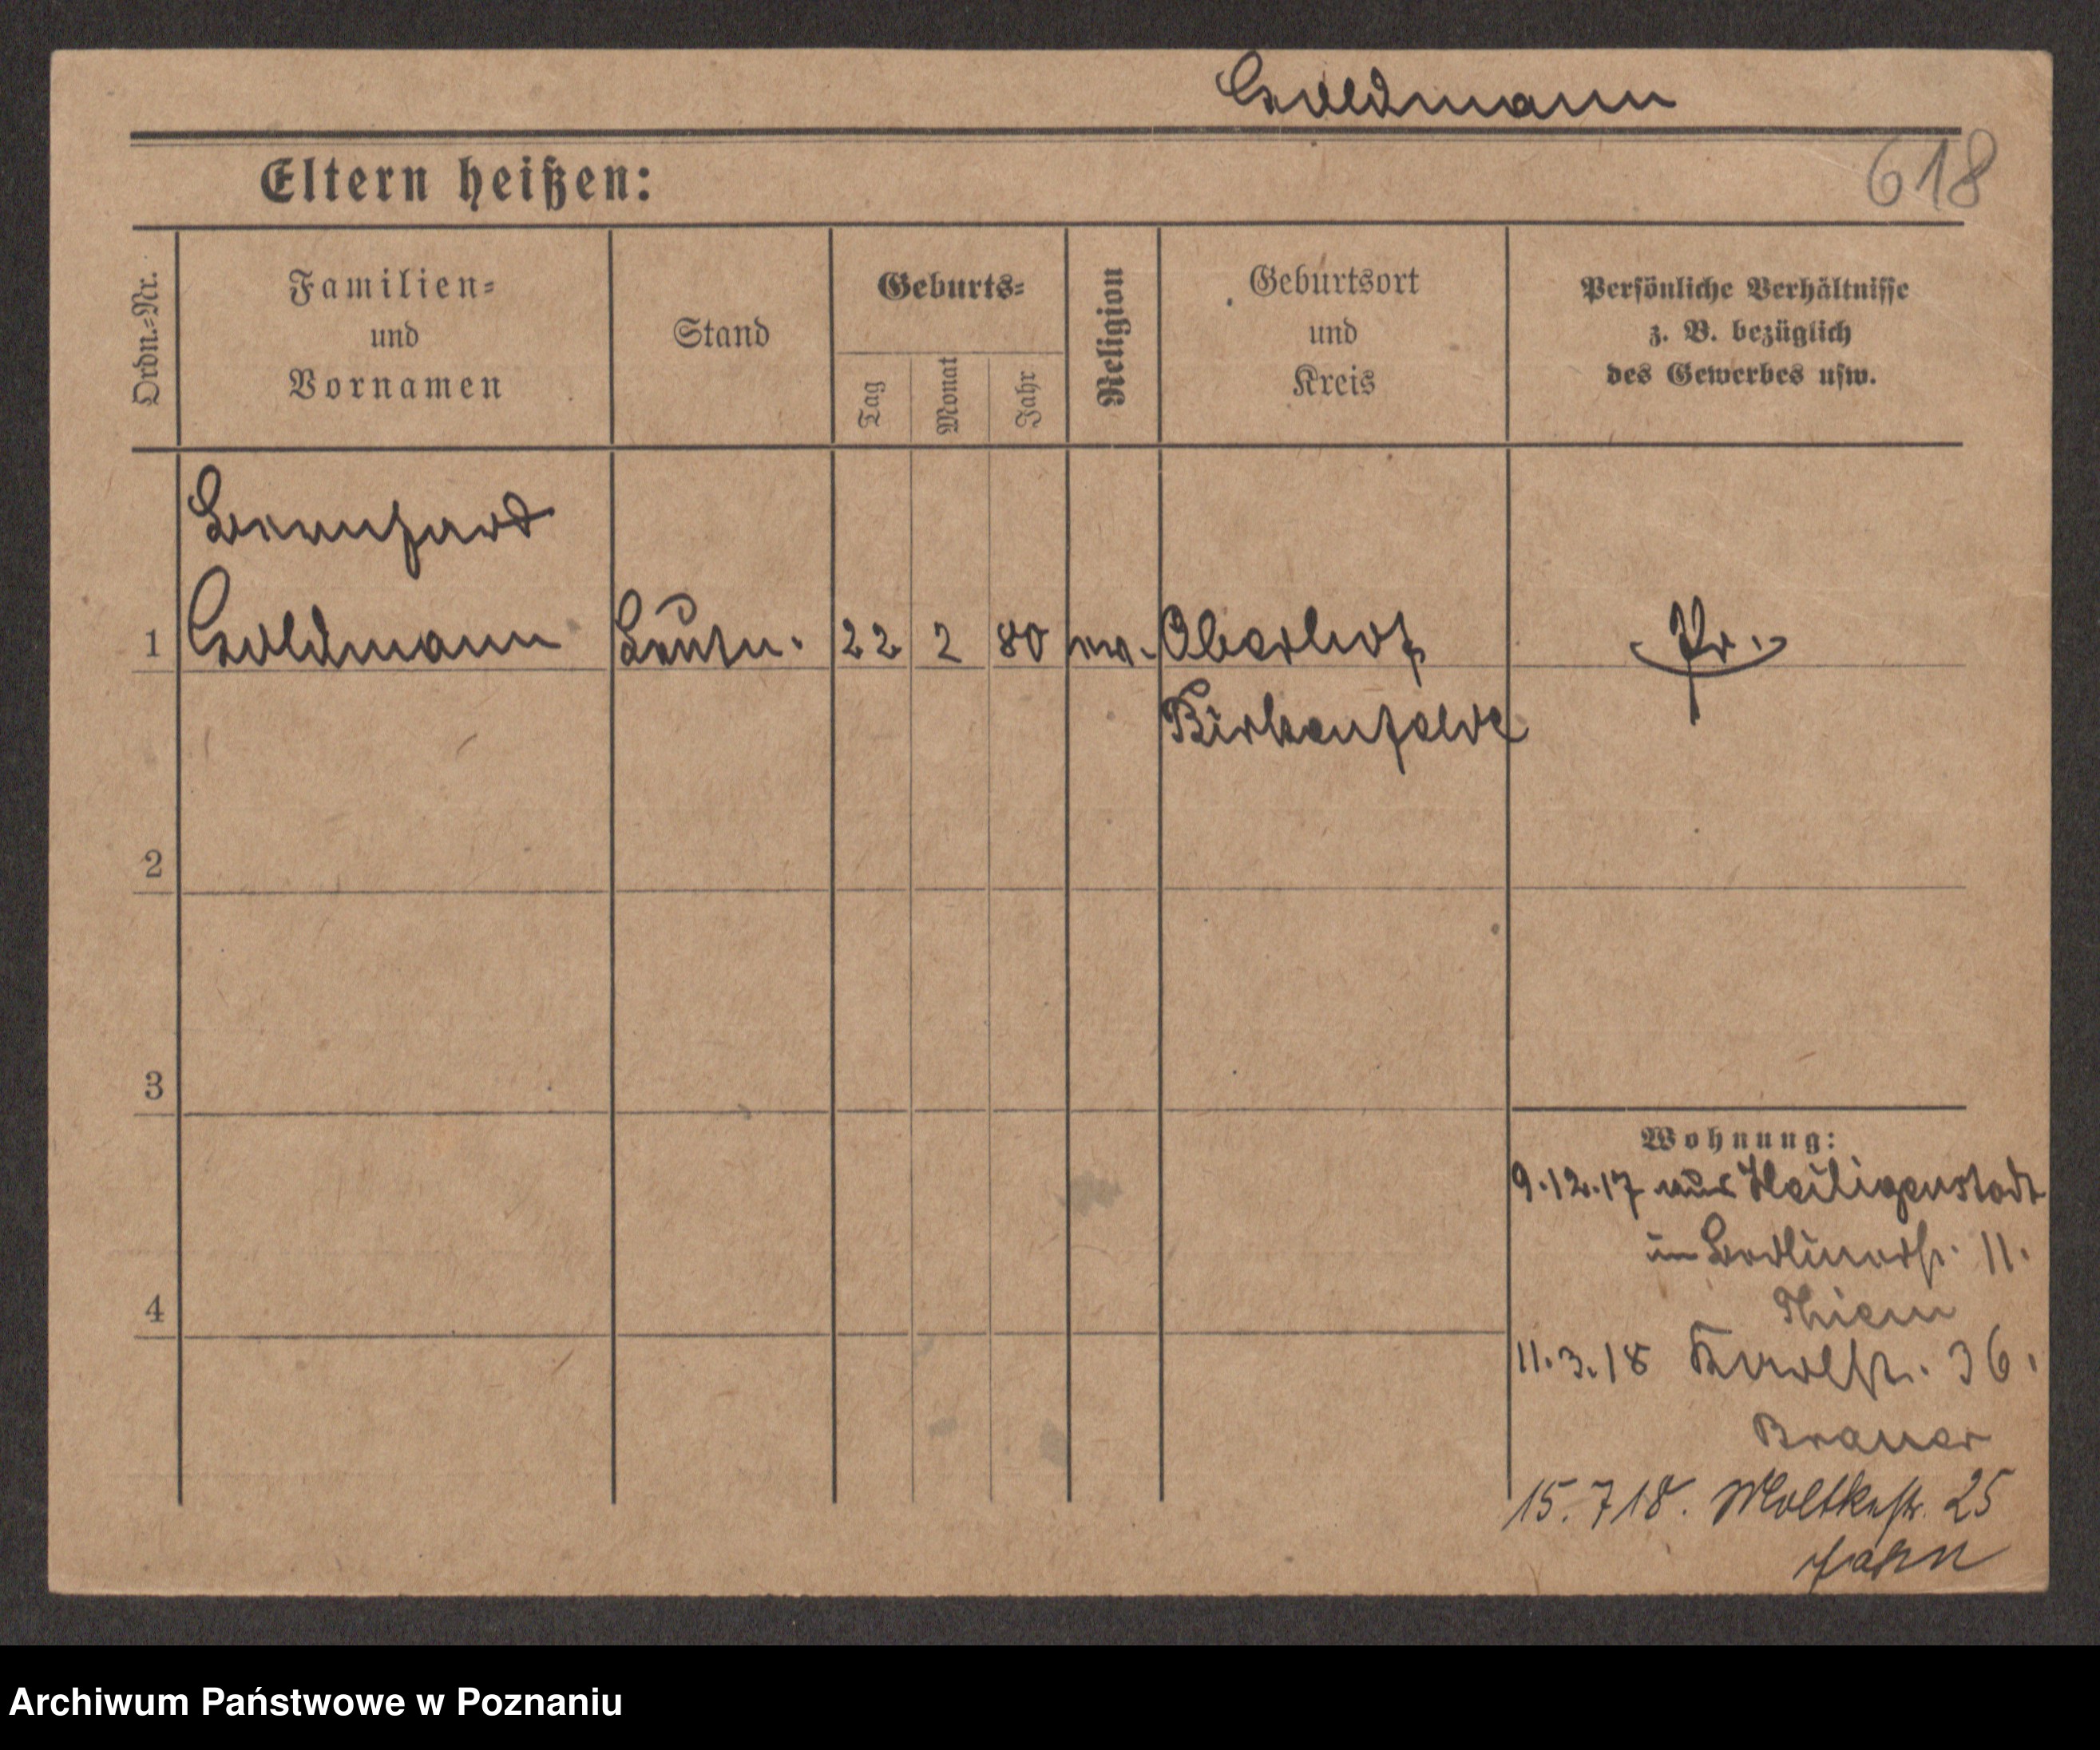 Goldmann
618
Eltern heißen:
Ordn.-Nr.
Familien-
und
Vornamen
Stand
Geburts-
Tag
Monat
Jahr
Religion
Geburtsort
und
Kreis
Persönliche Verhältnisse
z. B. bezüglich
des Gewerbes usw.
Bernhard
1 Goldmann 22 2 80 Oberhof Pr.
Birkenfelde
2
3
Wohnung:
9.12.17 aus Heiligenstadt
in Berlinerstr. 11.
Thiem
4
11.3.18 36.
Brauer
15.7 18. Moltkestr. 25
Jahn
Archiwum Państwowe w Poznaniu